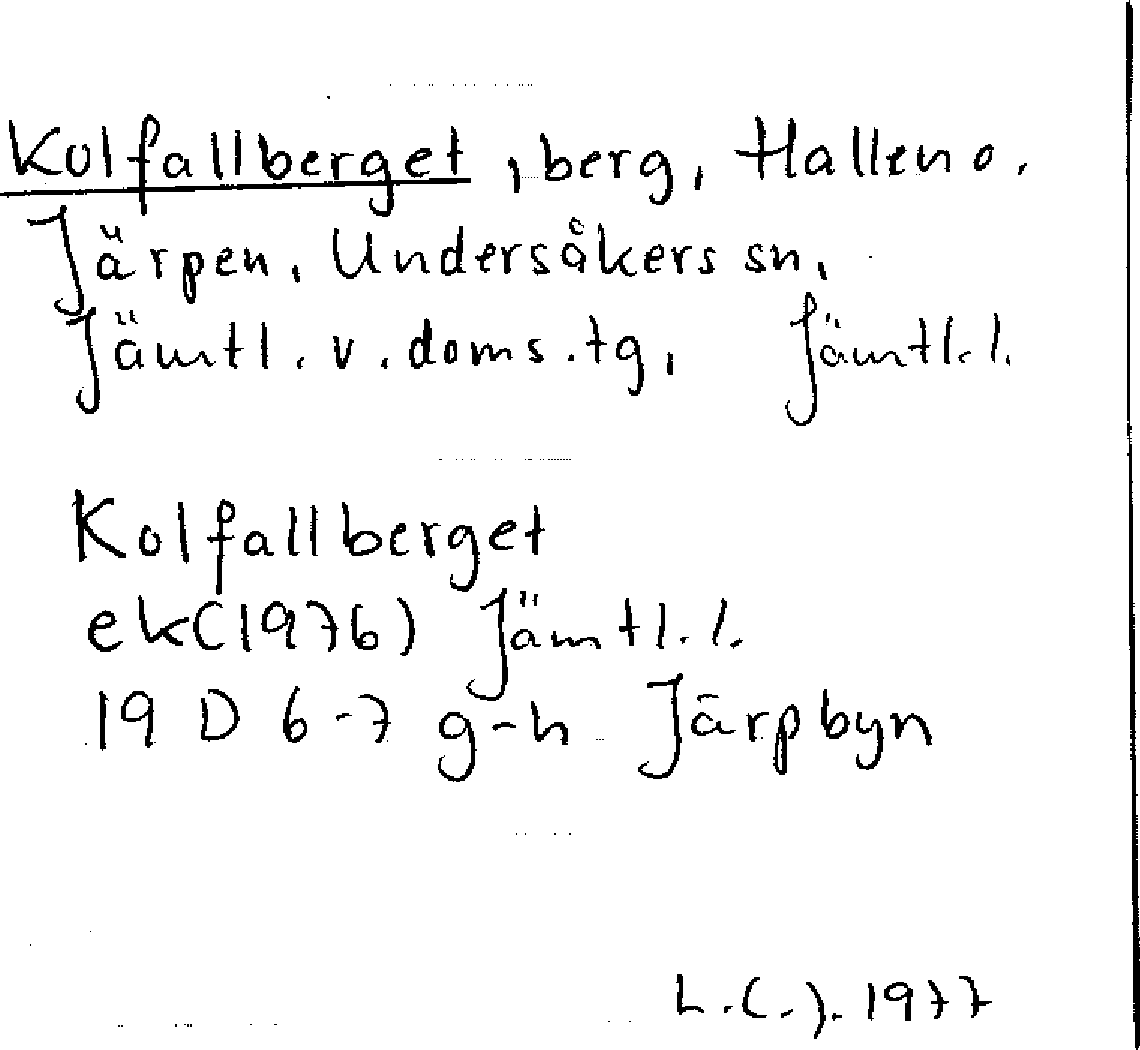 Kolfallberget, berg, Hallen o.
Järpen, Undersåkers sn,
Jämtl. v. doms.tg, Jämtl. l.
Kolfallberget
ek(1976) Jämtl. l.
19 D 6-7 g-h Järpbyn
L.C.J. 1977